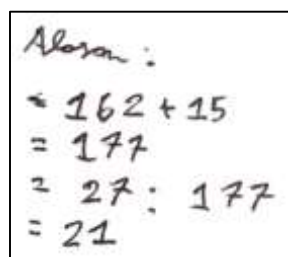 Alasan :
= 162 + 15
= 177
= 27 : 177
= 21